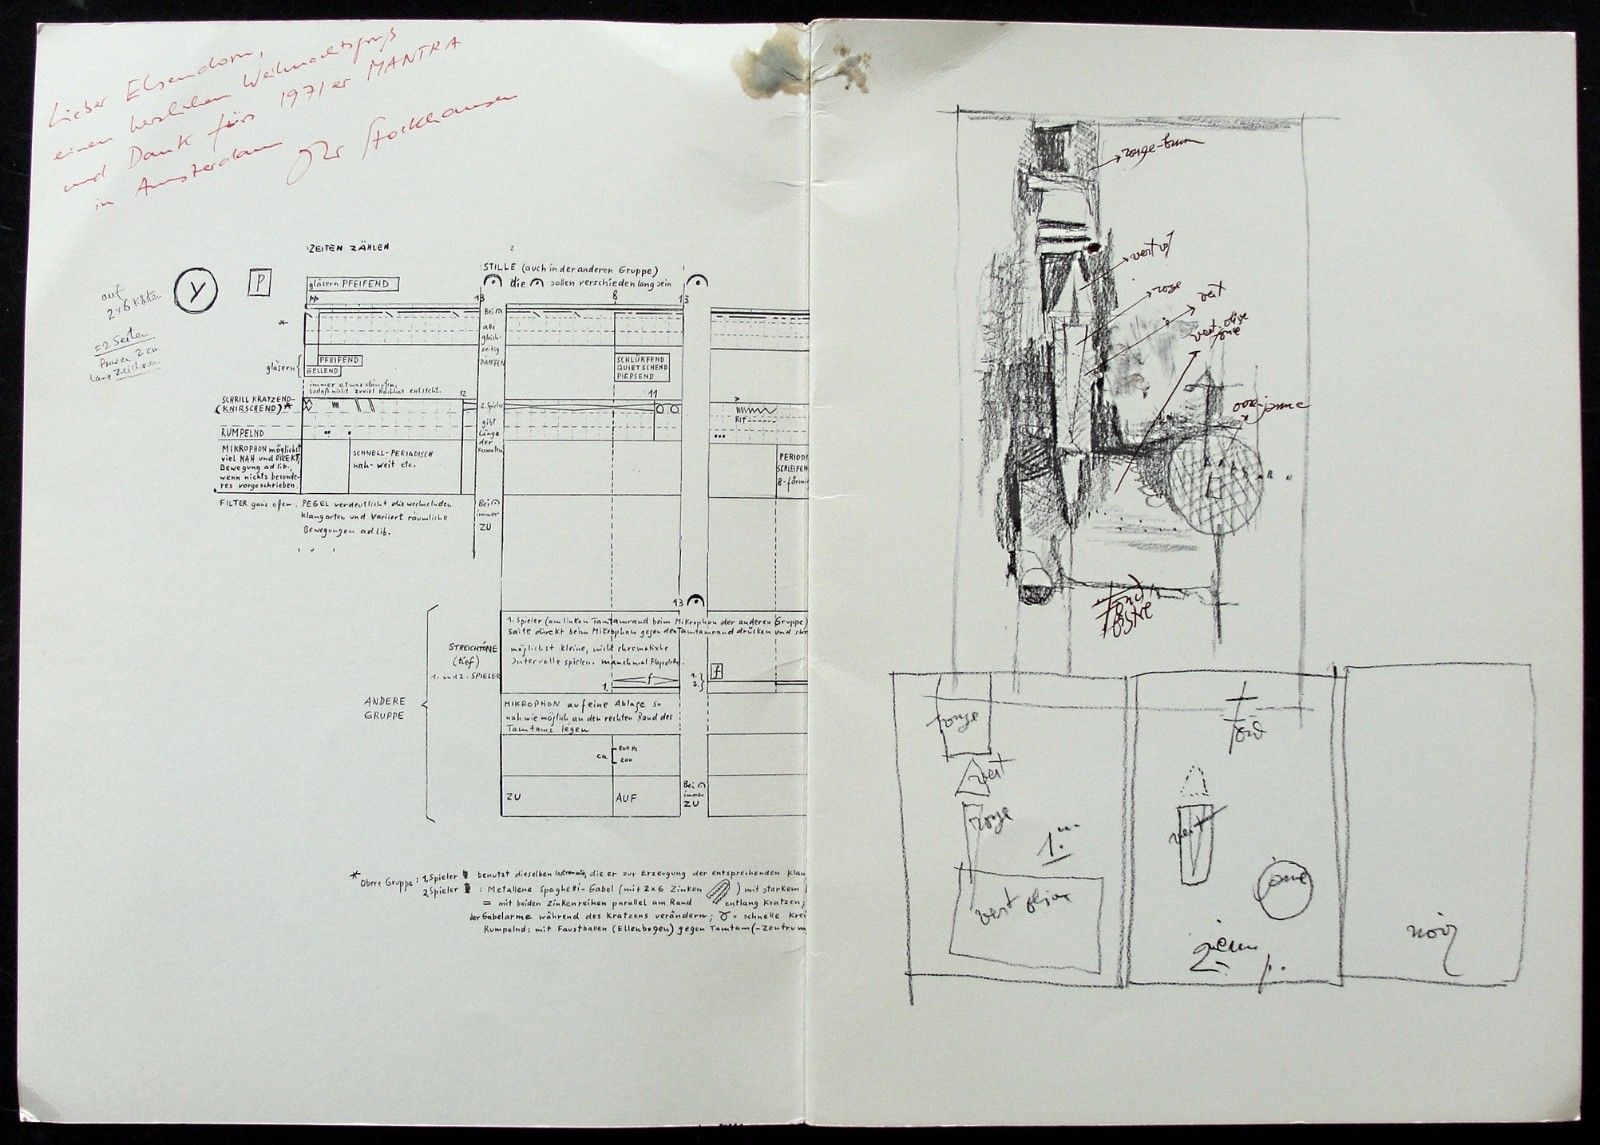 Lieber Elsendoorn,
einen herzlichen Weihnachtsgruß
und Dank fürs 1971er MANTRA
in Amsterdam Ihr Stockhausen
ZEITEN ZÄHLEN
2
STILLE (auch in der anderen Gruppe)
die sollen verschieden lang sein
auf
=2 Seiten
Y
P
gläsern PFEIFEND
pp
13
8
13
*
gläsern
PFEIFEND
GELLEND
SCHLÜRFEND
QUIETSCHEND
PIEPSEND
Bei
alle
gleich-
zeitig
DÄMPFEN
immer etwas dämpfen,
sodaß nicht zuviel Nachhall entsteht.
SCHRILL KRATZEND-
(KNIRSCHEND)*
12
2. Spieler
gibt
Länge
der
Fermaten
11
RUMPELND
MIKROPHON möglichst
viel NAH und DIREKT
Bewegung ad lib.,
wenn nichts besonde-
res vorgeschrieben.
SCHNELL-PERIODISCH
nah-weit etc.
PERIOD
SCHLEIFEN
8-förmi
FILTER ganz offen.
PEGEL verdeutlicht die wechselnden
Klangarten und Variiert räumliche
Bewegungen ad lib.
Bei
immer
ZU
13
ANDERE
GRUPPE
STREICHTÖNE
(tief)
1. und 2. SPIELER
1. Spieler (am linken Tamtamrand beim Mikrophon der anderen Gruppe)
Saite direkt beim Mikrophon gegen den Tamtamrand drücken und stre
möglichst kleine, nicht chromatische
Intervalle spielen. manchmal Flageolette.
1.
f
1.
2.
f
MIKROPHON auf eine Ablage so
nah wie möglich an den rechten Rand des
Tamtams legen
ca
200
ZU
AUF
Bei
immer
ZU
* Obere Gruppe: 1. Spieler benutzt dieselben die er zur Erzeugung der entsprechenden Klan
2. Spieler : Metallene Spaghetti-Gabel (mit 2x6 Zinken ) mit starkem
= mit beiden Zinkenreihen parallel am Rand entlang Kratzen;
der Gabelarme während des Kratzens verändern; = schnelle Krei
Rumpelnd: mit Faustballen (Ellenbogen) gegen Tamtam (-Zentrum
rouge-brun
vert
rouge
vert
vert olive
ocre-jaune
fond
rouge
vert
rouge
1.
vert olive
fond
vert
2ième p.
noir